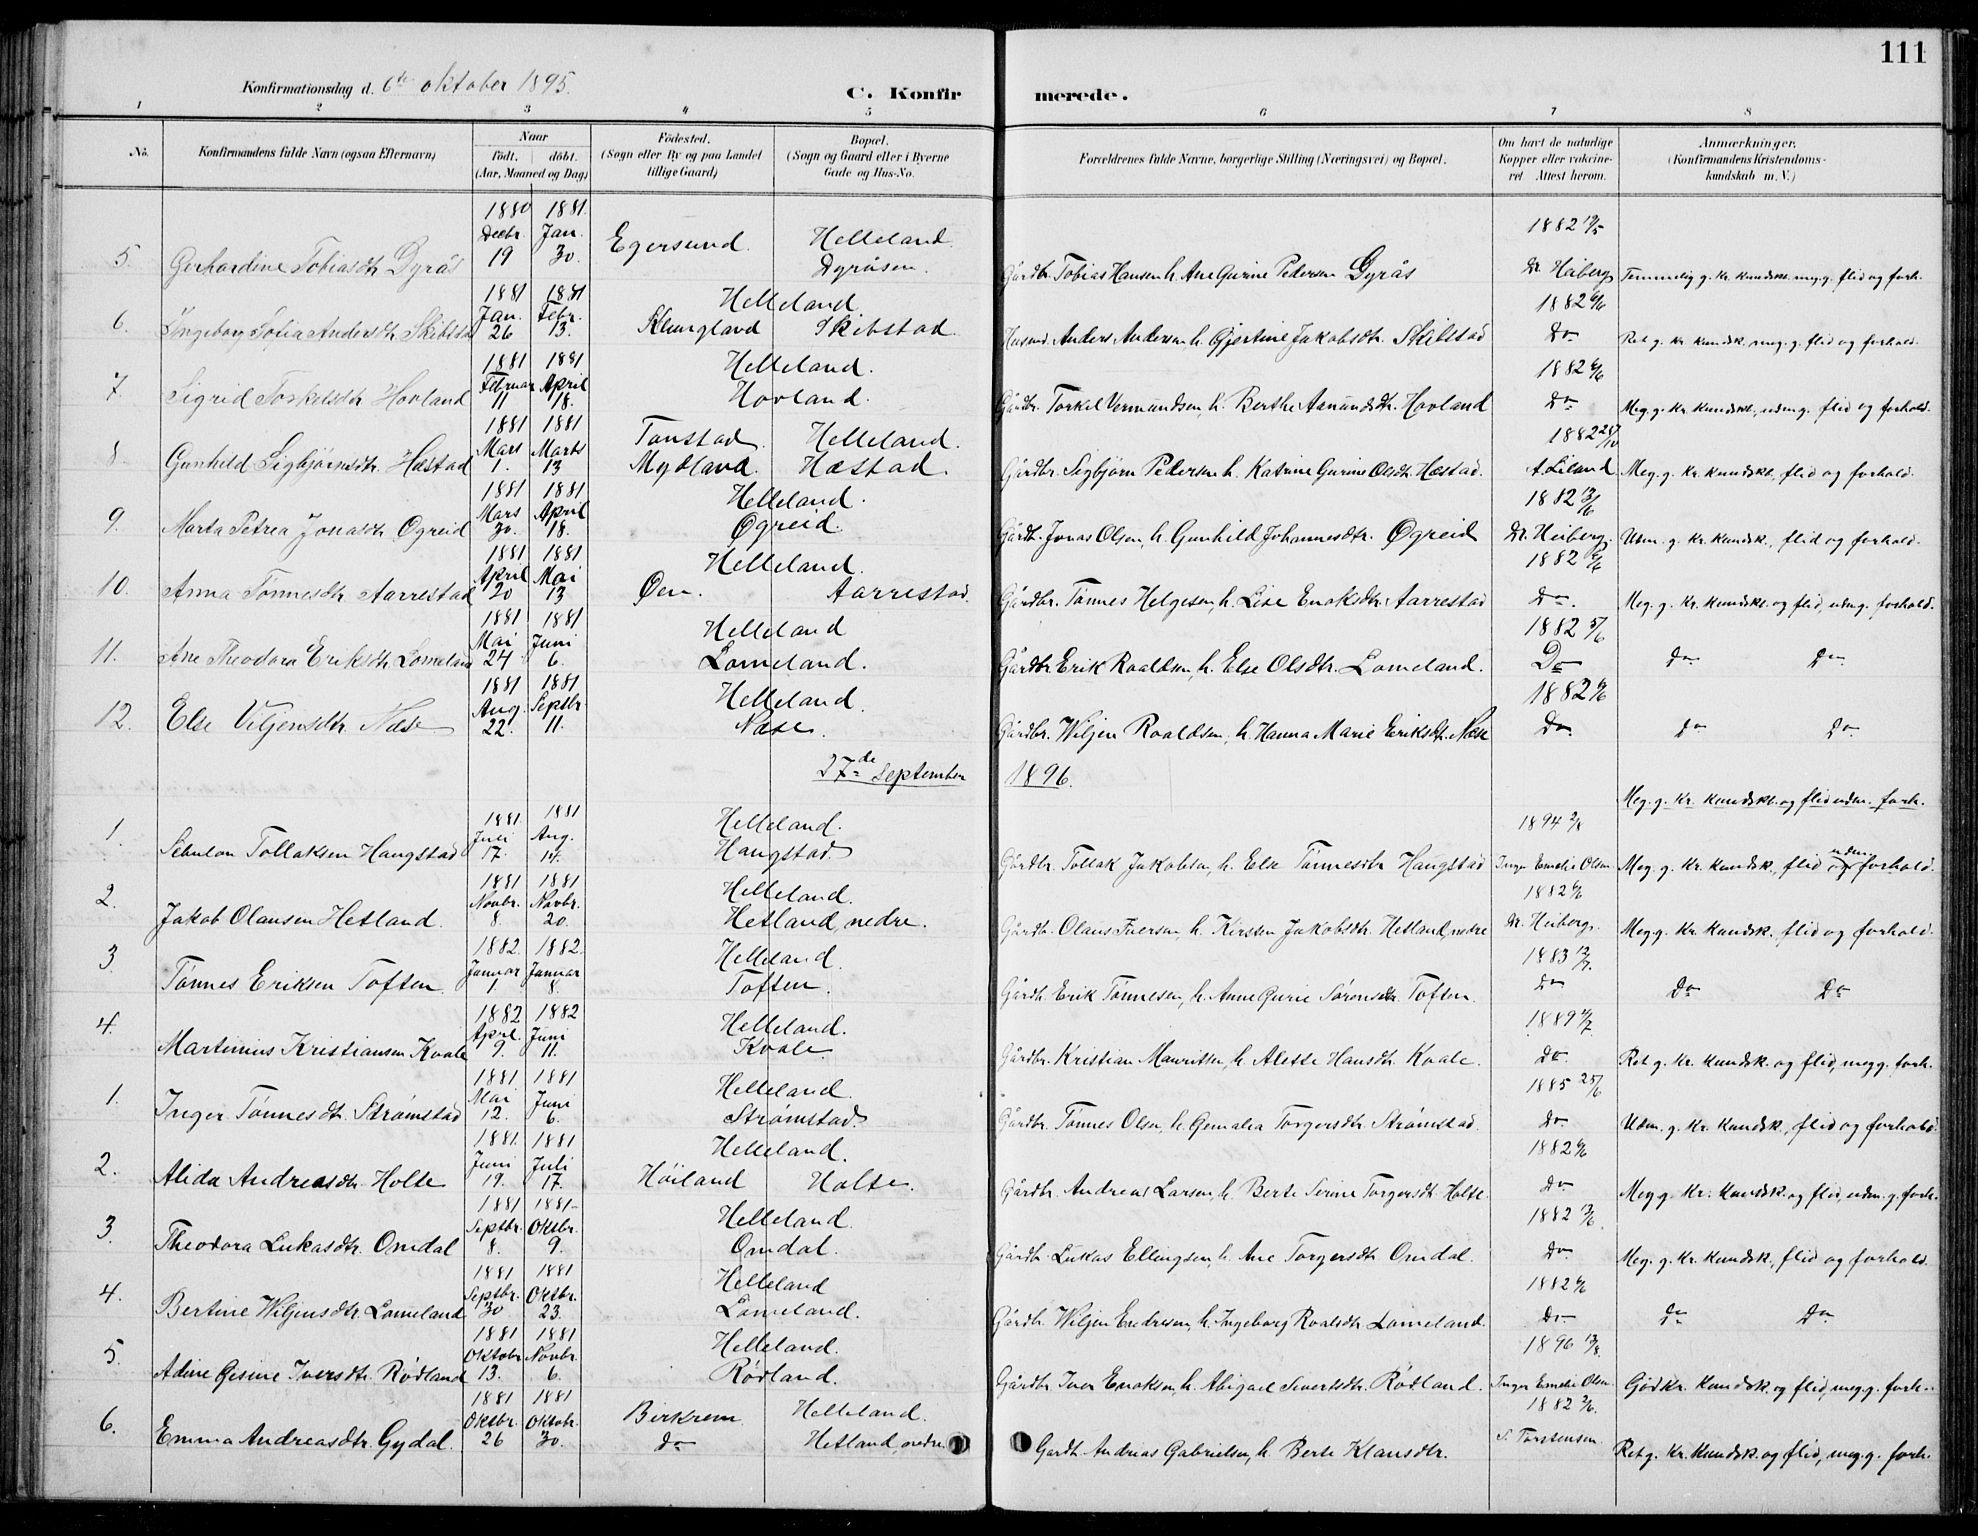 111
Konfirmationsdag d. 6te oktober 1895.
C. Konfirmerede.
1 2 3 4 5 6 7 8
No. Konfirmandens fulde Navn (ogsaa Efternavn) Naar födt. döbt. (Aar, Maaned og Dag) Födested. (Sogn eller By og paa Landet tillige Gaard) Bopæl. (Sogn og Gaard eller i Byerne Gade og Hus-No. Forældrenes fulde Navne, borgerlige Stilling (Næringsvei) og Bopæl. Om havt de naturlige Kopper eller vakcineret Attest herom. Anmærkninger. (Konfirmandens Kristendomskundskab m. V.)
1880 1881. 1882
Decbr. Jan. Egersund. Helleland.
5. Gerhardine Tobiasdtr Dyrås 19 30. Dyråsen. Gårdbr. Tobias Hansen h. Ane Gurine Pedersen Dyrås Dr. Heiberg Temmelig g. kr. kundsk. meg. g. flid og forh.
1881 1881 Helleland. 1882 6/6
Jan. Febr.
6. Ingeborg Sofia Andersdtr Skibstad 26 13. Klungland Skibstad. Husmd. Anders Andersen, h. Gjertine Jakobsdtr. Skibstad Do Ret g. kr. kundsk. meg. g. flid og forhold.
1881 1881 Helleland. 1882 6/6
Februar April
7. Sigrid Torkelsdtr Hovland 11 18. Hovland. Gårdbr. Torkel Vermundsen h. Berthe Aanundsdtr. Hovland Do Meg. g. kr. kundsk., udm. g. flid og forhold.
1881 1881 Tonstad Helleland. 1882
Mars Marts
8. Gunhild Sigbjørnsdtr. Hæstad 1. 13 Mydland. Hæstad. Gårdbr. Sigbjørn Pedersen h. Katrine Gurine Olsdtr. Hæstad. Meg. g. kr. kundsk., flid og forhold.
1881 1881 Helleland. 1882 13/6
Mars April
9. Marta Petrea Jonasdtr Øgreid 30. 18. Øgreid. Gårdb. Jonas Olsen, h. Gunhild Johannesdtr. Øgreid Dr. Heiberg. Udm. g. kr. kundsk., flid og forhold.
1881 1881 Helleland. 1882 6/6
April Mai
10. Anna Tønnesdtr Aarrestad 20 13 Øen. Aarrestad. Gårdbr. Tønnes Helgesen, h. Lise Enoksdtr. Aarrestad Do. Meg. g. kr. kundsk. og flid, udm. g. forhold.
1881 1881 Helleland 1882 5/6
Mai Juni
11. Ane Theodora Eriksdtr Lomeland 24 6. Lomeland. Gårdbr. Erik Roaldsen, h. Else Olsdtr. Lomeland. Do Do Do
1881 1881 Helleland. 1882 6/6
Aug. Septbr.
12. Else Viljensdtr Næse 22. 11. Næse. Gårdbr. Wiljen Roaldsen, h. Hanna Marie Eriksdtr. Næse Do Do Do
27de September 1896.
Meg. g. kr. kundsk. og flid udm. forh.
1881. 1881 Helleland. 1894
Juli Aug.
1. Sebulon Tollaksen Haugstad 17. 14. Haugstad. Gårdbr. Tollak Jakobsen, h. Else Tønnesdtr Haugstad Inger Emelie Olsen Meg. g. kr. kundsk., flid og udm. forhold.
1881 1881 Helleland. 1882 6/6
Novbr. Novbr.
2. Jakob Olausen Hetland. 8. 20. Hetland, nedre. Gårdb. Olaus Iversen, h. Kirsten Jakobsdtr. Hetland, nedre Dr. Heiberg. Meg g. kr. kundsk. flid og forhold.
1882. 1882. Helleland. 1883
Januar Januar
3. Tønnes Eriksen Toften 1. 8. Toften. Gårdb. Erik Tønnesen, h. Anne Gurie Sørensdtr. Toften. Do Do Do
1882 1882 Helleland. 1889
April. Juni
4. Martinius Kristiansen Kvale 9. 11. Kvale. Gårdbr. Kristian Mauritsen, h. Alette Hansdtr. Kvale. Do. Ret g. kr. kundsk. og flid, meg g. forh.
1881. 1881 Helleland. 1885 25/6
Mai Juni
1. Inger Tønnesdtr. Strømstad 12. 6. Strømstad. Gårdbr. Tønnes Olsen, h. Gemalia Torgersdtr Strømstad. Do Udm. g. kr. kundsk., flid og forhold.
1881. 1881 Helleland. 1882 6/6
Juni Juli
2. Alida Andreasdtr Holte 19. 17. Høiland Holte. Gårdbr. Andreas Larsen, h. Berte Serine Torgersdtr Holte. Do Meg g. kr. kundsk. og flid, udm. g. forh.
1881 1881 Helleland. 1882 13/6
Septbr. Oktbr.
3. Theodora Lukasdtr. Omdal 8. 9. Omdal. Gårdb. Lukas Ellingsen, h. Ane Torgersdtr Omdal. Do Meg. g. kr. kundsk., flid og forhold.
1881 1881 Helleland 1882 6/6
Septbr. Oktbr.
4. Bertine Wiljensdtr. Lomeland 30 23. Lomeland. Gårdbr. Wiljen Endresen, h. Ingeborg Roalsdtr Lomeland. Do Do Do
1881 1881 Helleland. 1896
Oktobr Novbr.
5. Adine Gesine Iversdtr. Rødland 13. 6. Rødland. Gårdbr. Iver Enoksen, h. Abigael Sivertsdtr. Rødland. Inger Emelie Olsen God kr. kundsk. og flid, meg. g. forh.
1881 1881 Birkrem Helleland. 1882
Oktbr. Oktobr.
6. Emma Andreasdtr. Gydal. 26 30. do Hetland, nedre Gardb. Andreas Gabrielsen, h. Berte Klausdtr. S. Torstensen Ret g. kr. kundsk. og flid, meg. g. forh.